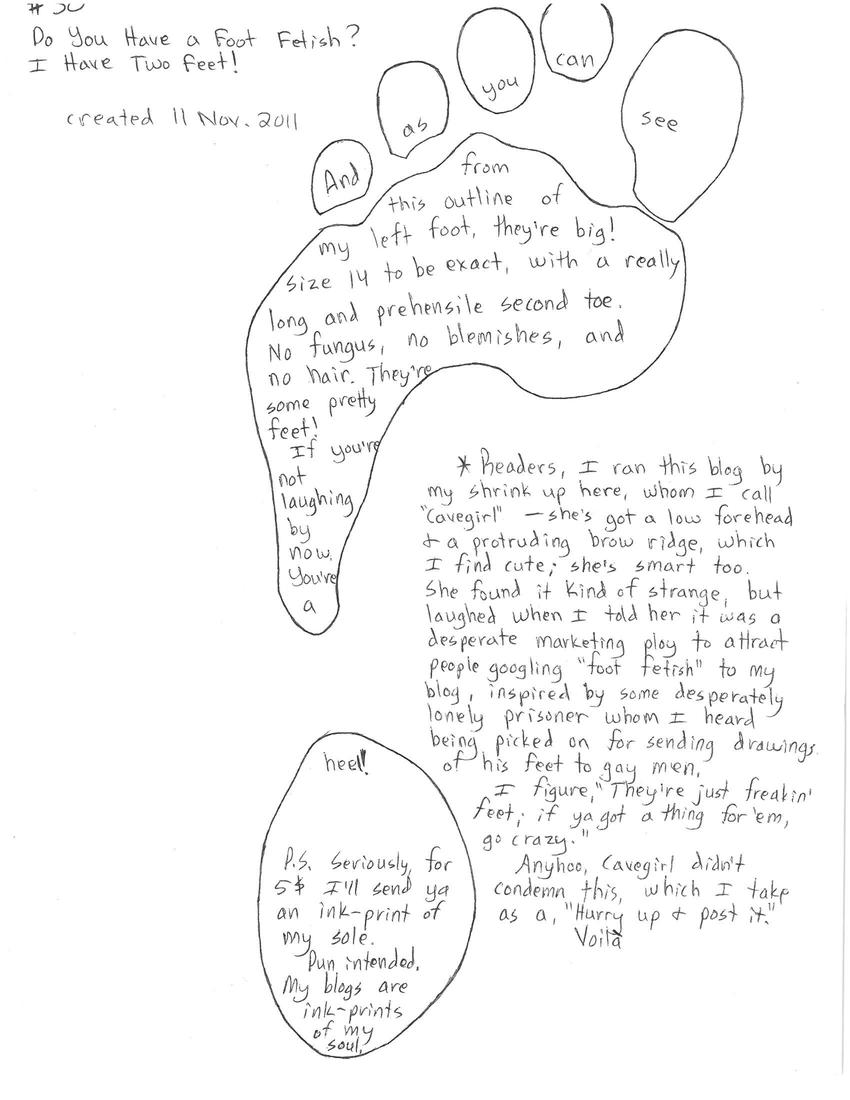 Do You Have a Foot Fetish?
I Have Two Feet!
created 11 Nov. 2011
And
as
you
can
see
from
this outline of
my left foot, they're big!
Size 14 to be exact, with a really
long and prehensile second toe.
No fungus, no blemishes, and
no hair. They're
some pretty
feet!
If you're
not
laughing
by
now,
You're
a
heel!
P.S. Seriously, for
5$ I'll send ya
an ink-print of
my sole.
Pun intended.
My blogs are
ink-prints
of my
soul.
* Readers, I ran this blog by
my shrink up here, whom I call
"Cavegirl" - she's got a low forehead
+ a protruding brow ridge, which
I find cute; she's smart too.
She found it kind of strange, but
laughed when I told her it was a
desperate marketing ploy to attract
people googling "foot fetish" to my
blog, inspired by some desperately
lonely prisoner whom I heard
being picked on for sending drawings
of his feet to gay men.
I figure, "They're just freakin'
feet; if ya got a thing for 'em,
go crazy."
Anyhoo, Cavegirl didn't
condemn this, which I take
as a, "Hurry up + post it."
Voilà